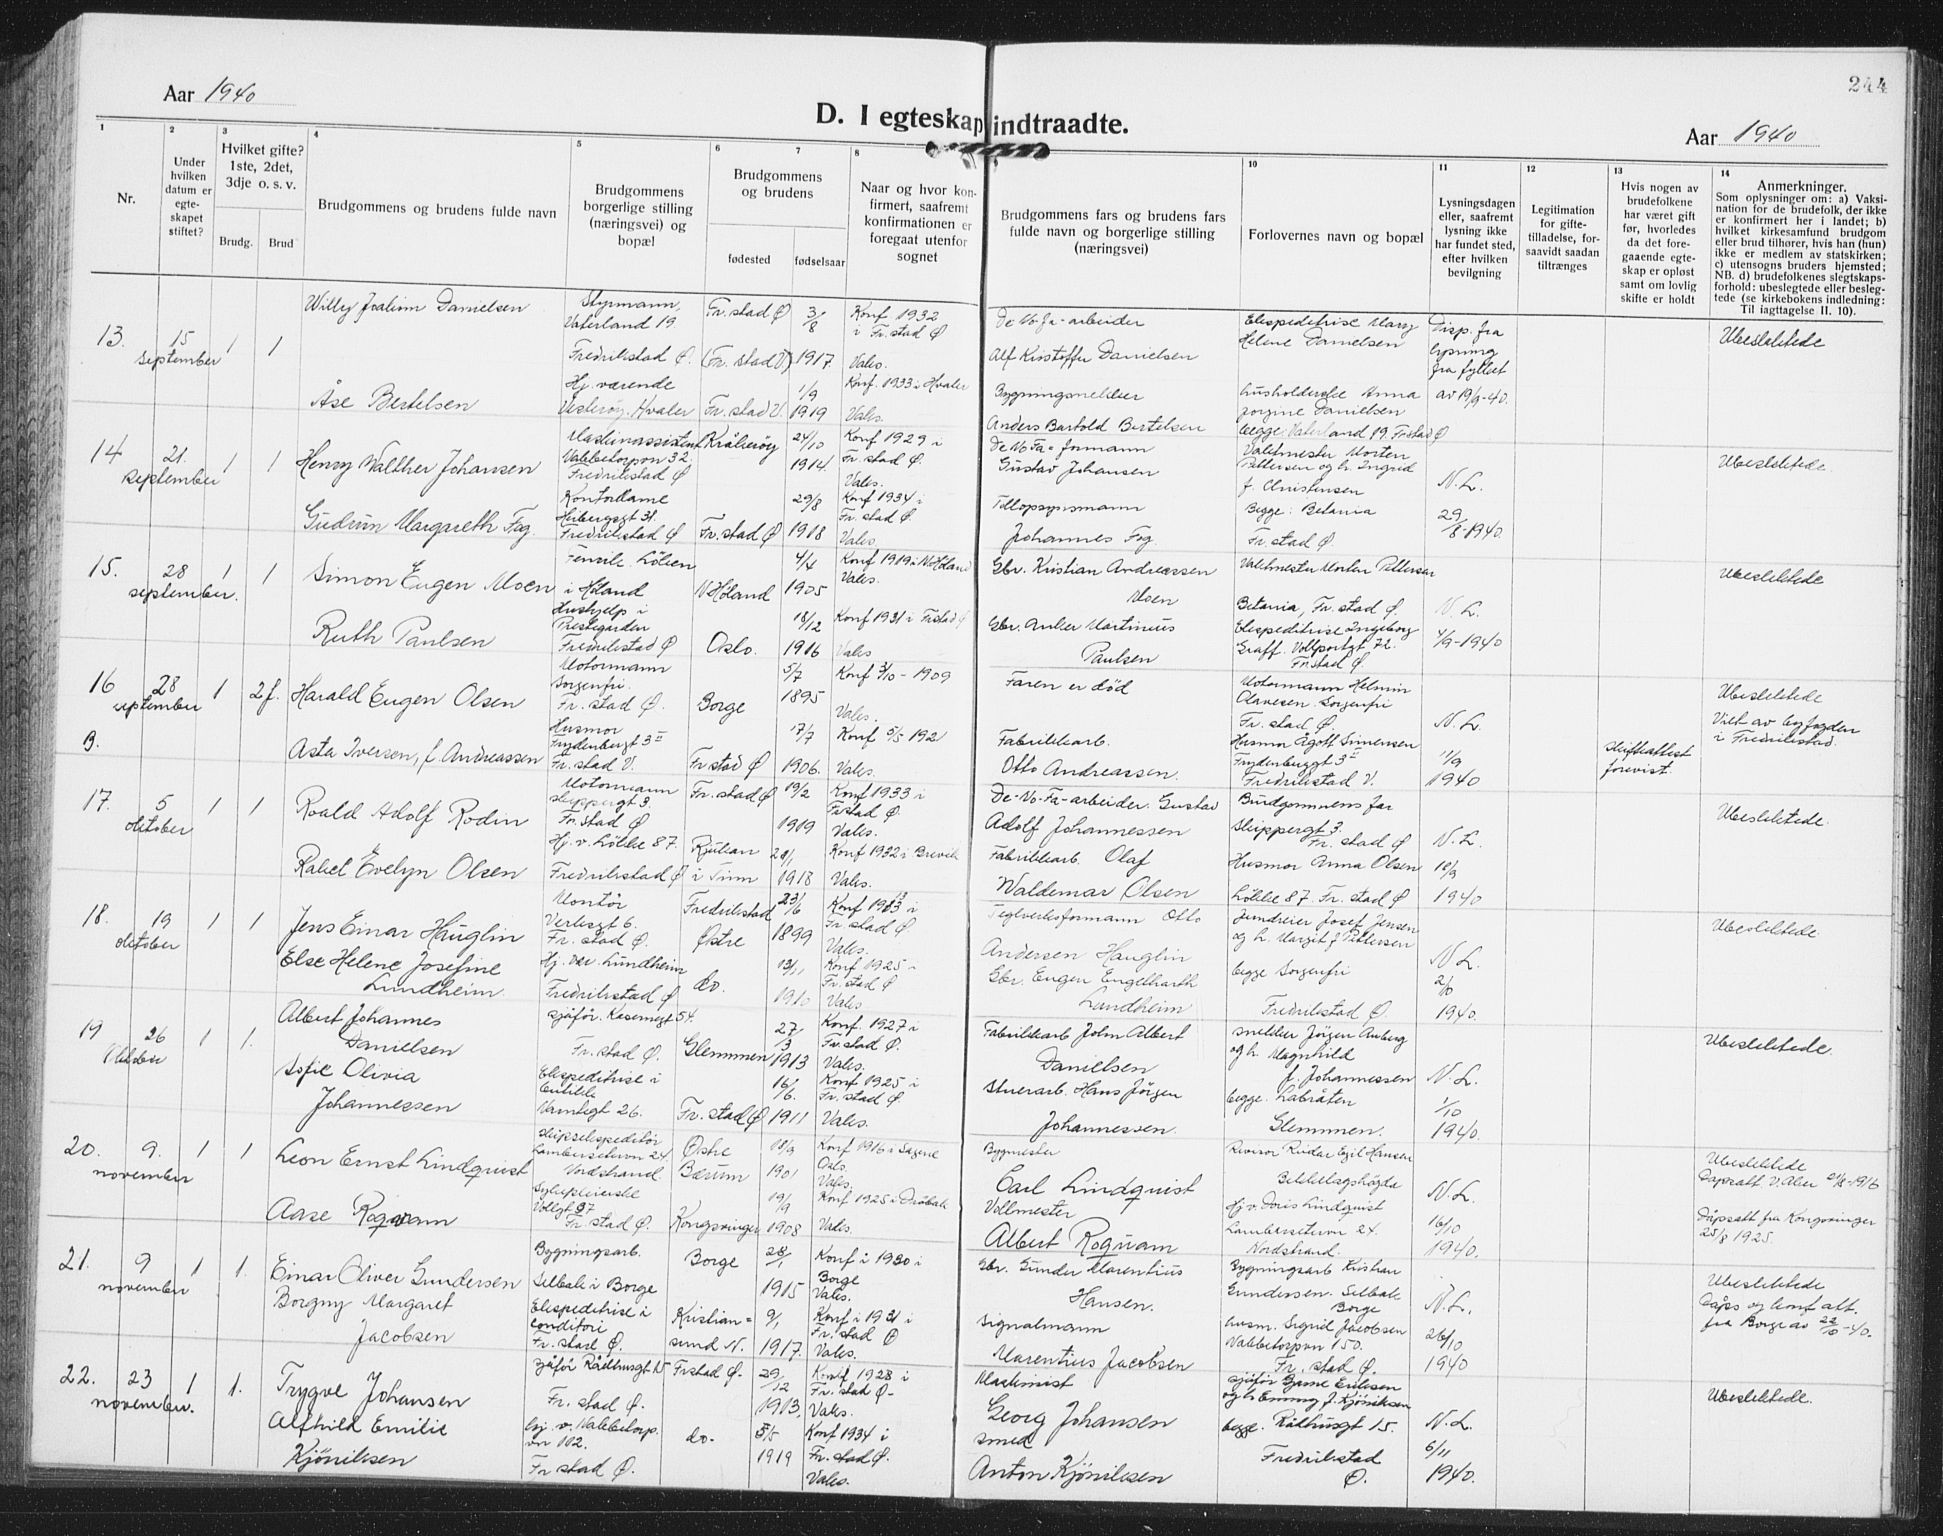 244
Aar 1940
D. I egteskap indtraadte.
Aar 1940
1
Nr.
2
Under
hvilken
datum er
egte-
skapet
stiftet?
3
Hvilket gifte?
1ste, 2det,
3dje o. s. v.
Brudg.
Brud
4
Brudgommens og brudens fulde navn
5
Brudgommens
borgerlige stilling
(næringsvei) og
bopæl
6
7
Brudgommens
og brudens
fødested
fødselsaar
8
Naar og hvor kon-
firmert, saafremt
konfirmationen er
foregaat utenfor
sognet
Brudgommens fars og brudens fars
fulde navn og borgerlige stilling
(næringsvei)
10
Forlovernes navn og bopæl
11
Lysningsdagen
eller, saafremt
lysning ikke
har fundet sted,
efter hvilken
bevilgning
12
Legitimation
for gifte-
tilladelse, for-
saavidt saadan
tiltrænges
13
Hvis nogen av
brudefolkene
har været gift
før, hvorledes
da det fore-
gaaende egte-
skap er opløst
samt om lovlig
skifte er holdt
14
Anmerkninger.
Som oplysninger om: a) Vaksi-
nation for de brudefolk, der ikke
er konfirmert her i landet; b)
hvilket kirkesamfund brudgom
eller brud tilhører, hvis han (hun)
ikke er medlem av statskirken;
c) utensogns bruders hjemsted;
NB. d) brudefolkenes slegtskaps-
forhold: ubeslegtede eller besleg-
tede (se kirkebokens indledning:
Til iagttagelse II. 10).
13.
15
september
1
1
Willy Joakim Danielsen
Styrmann,
Vaterland 19
Fredrikstad Ø.
Fr. stad Ø
(Fr. stad V.)
3/8
1917.
Konf 1932
i Fr. stad Ø
Vaks.
De-No-Fa-arbeider
Alf Kristoffer Danielsen
Ekspeditrise Mary
Helene Danielsen
Disp. fra
lysning
fra fylket
av 19/9-40.
Ubeslektede
Åse Bertelsen
Hj. værende
Vesterøy. Hvaler
Fr. stad V.
1/9
1919
Konf. 1933 i Hvaler
Vaks.
Bygningsnekker
Anders Bartold Bertelsen
husholderske Anna
Jorgine Danielsen
begge Vaterland 19. Fr.stad Ø
14
21.
september
1
1
Henry Walther Johansen
Maskinassistent
Vabbetorpvn 32
Fredrikstad Ø
Kråkerøy
24/10
1914
Konf 1929 i
Fr. stad Ø.
Vaks.
De No Fa-formann
Gustav Johansen
Vaktmester Morten
Pettersen og h. Ingrid
f. Christensen
N. L.
Ubeslektede
Gudrun Margareth Fog.
Kontordame
Heibergsgt 31.
Fredrikstad Ø
Fr. stad Ø
29/8
1918
Konf 1934 i
Fr. stad Ø.
Vaks.
Tilsynsmann
Johannes Fog.
Begge: Betania
Fr. stad Ø.
29/8-1940.
15.
28
september.
1
1
Simon Eugen Moen
i Høland
N Høland
4/4
1905
Konf 1919 i N. Høland
Vaks.
Gbr. Kristian Andreassen
Moen
Vaktmester Morten Pettersen
Betania, Fr. stad Ø.
N. L.
Ubeslektede
Ruth Paulsen
Hushjelp i
Prestegården
Fredrikstad Ø
Oslo.
18/12
1916
Konf 1931 i Fr.stad Ø
Vaks
Gbr. Anker Martinius
Paulsen
Ekspeditrise Ingeborg
Graff. Vollportgt 72.
Fr. stad Ø.
4/9-1940
16
28
september
1
2 f.
Harald Eugen Olsen
Motormann
Sorgenfri.
Fr. stad Ø.
Borge
5/7
1895
Konf 3/10-1909
Vaks.
Faren er død
Motormann Helmin
Olavesen. Sorgenfri
Fr. stad Ø.
N. L.
Ubeslektede
Viet av byfogden
i Fredrikstad.
B.
Asta Iversen, f. Andreassen
Husmor
Frydenbergt 3 II
Fr. stad V.
Fr stad Ø
17/7
1906.
Konf 5/5 1921
Vaks.
Fabrikkarb.
Otto Andreassen.
Husmor Ågott Simensen
Frydenberggt 3 II
Fredrikstad V.
11/9
1940
skifteattest
forevist.
17.
5
oktober
1
1
Roald Adolf Rodin
Motormann
Skippergt 3.
Fr. stad Ø
Fr. stad Ø
19/2
1919
Konf 1933 i
Fr.stad Ø.
Vaks.
De-No-Fa-arbeider. Gustav
Adolf Johannessen
Burdgommens far
Skippergt 3.
Fr. stad Ø
N. L.
Ubeslektede.
Rakel Evelyn Olsen
Hj. v. Løkke 87.
Fredrikstad Ø
Rjukan
i Tinn
28/1
1918
Konf 1932 i Brevik
Vaks.
Fabrikkarb. Olaf
Waldemar Olsen
Husmor Anna Olsen
Løkke 87. Fr. stad Ø
18/9
1940
18.
19
oktober
1
1
Jens Einar Hauglin
Montør
Verksgt 6.
Fr. stad Ø.
Fredrikstad
Østre
23/6
1899
Konf 1913 i
Fr. stad Ø
Vaks.
Teglverksformann Otto
Andersen Hauglin
Jerndreier Josef Jensen
og h. Margit f Pettersen
N L.
Ubeslektede
Else Helene Josefine
Lundheim.
Hj. vær. Lundheim
Fredrikstad Ø
do.
13/11
1910
Konf 1925 i
Fr. stad Ø
Vaks.
Gbr. Eugen Engelharth
Lundheim
begge Sorgenfri
Fredrikstad Ø.
2/10
1940.
19
26
Oktober
1
1.
Albert Johannes
Danielsen
Sjåfør. Kasernegt 54
Fr. stad Ø.
Glemmen
27/3
1913
Konf. 1927 i
Fr. stad Ø.
Vaks.
Fabrikkarb John Albert
Danielsen
snekker Jörgen Amberg
og h. Magnhild
f. Johannessen
N. L.
Ubeslektede.
Sofie Olivia
Johannessen
Ekspeditrise i
Vamtigt 26.
Fr. stad Ø
16/6.
1911
Konf 1925 i
Fr. stad Ø.
Vaks.
Stuerarb. Hans Jörgen
Johannessen.
begge. Labråten
Glemmen.
1/10
1940.
20.
9.
november
1
1
Leon Ernst Lindquist
Skipsekspeditør
Lambersetervn 24.
Nordstrand.
Østre
Bærum
18/9
1901
Konf 1916 i Sagene
Oslo.
Vaks.
Bygmester
Carl Lindquist
Revisor Reidar Egil Hansen
Bekkelagshøgda
N. L.
Ubeslektede
Dåpsatt v. Aker 21/6-1916
Aase Roquam
Sykepleierske
Vollgt 27
Fr. stad Ø.
Kongsvinger
19/9
1908
Konf 1925 i Drøbak
Vaks.
Vollmester
Albert Roquam
Hj v. Doris Lindquist
Lambersetervn 24.
Nordstrand.
16/10
1940.
Dåpsatt fra Kongsvinger
25/8 1925.
21.
9
november
1
1.
Einar Oliver Gundersen
Bygningsarb.
Selbak i Borge
Borge
28/1
1915
Konf i 1930 i
Borge
Vaks.
Gbr. Gunder Marentius
Hansen.
Bygningsarb Kristian
Gundersen. Selbak
Borge
N. L.
Ubeslektede
Dåps og konf att.
fra Borge av 22/10-40.
Borgny Margaret
Jacobsen
Ekspeditrise i
conditori
Fr. stad Ø.
Kristian=
sund N.
9/1
1917.
Konf i 1931 i
Fr. stad Ø
Vaks.
Signalmann
Marentius Jacobsen
husm. Sigrid Jacobsen
Vabbetorpvn 150.
Fr. stad Ø.
26/10
1940
22.
23
november.
1
1.
Trygve Johansen
Sjåfør Rådhusgt 15
Fr. stad Ø.
Fr.stad Ø.
29/12
1913,
Konf 1928 i
Fr. stad Ø-
Vaks.
Maskinist
Georg Johansen
sjåför Bjarne Eriksen
og h Emmy f. Kjöniksen
begge. Rådhusgt 15.
N. L.
Ubeslektede.
Alfhild Emilie
Kjöniksen
hj. v. Vabbetorp.
vn 112.
Fr stad Ø.
do.
5/5
1919
Konf 1934 i
Fr. stad Ø.
Vaks.
smed
Anton Kjöniksen
Fredrikstad
Ø.
6/11
1940.